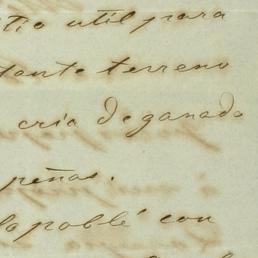 sitio util para
tante terreno
cria de ganado
peñas.
la poblé con